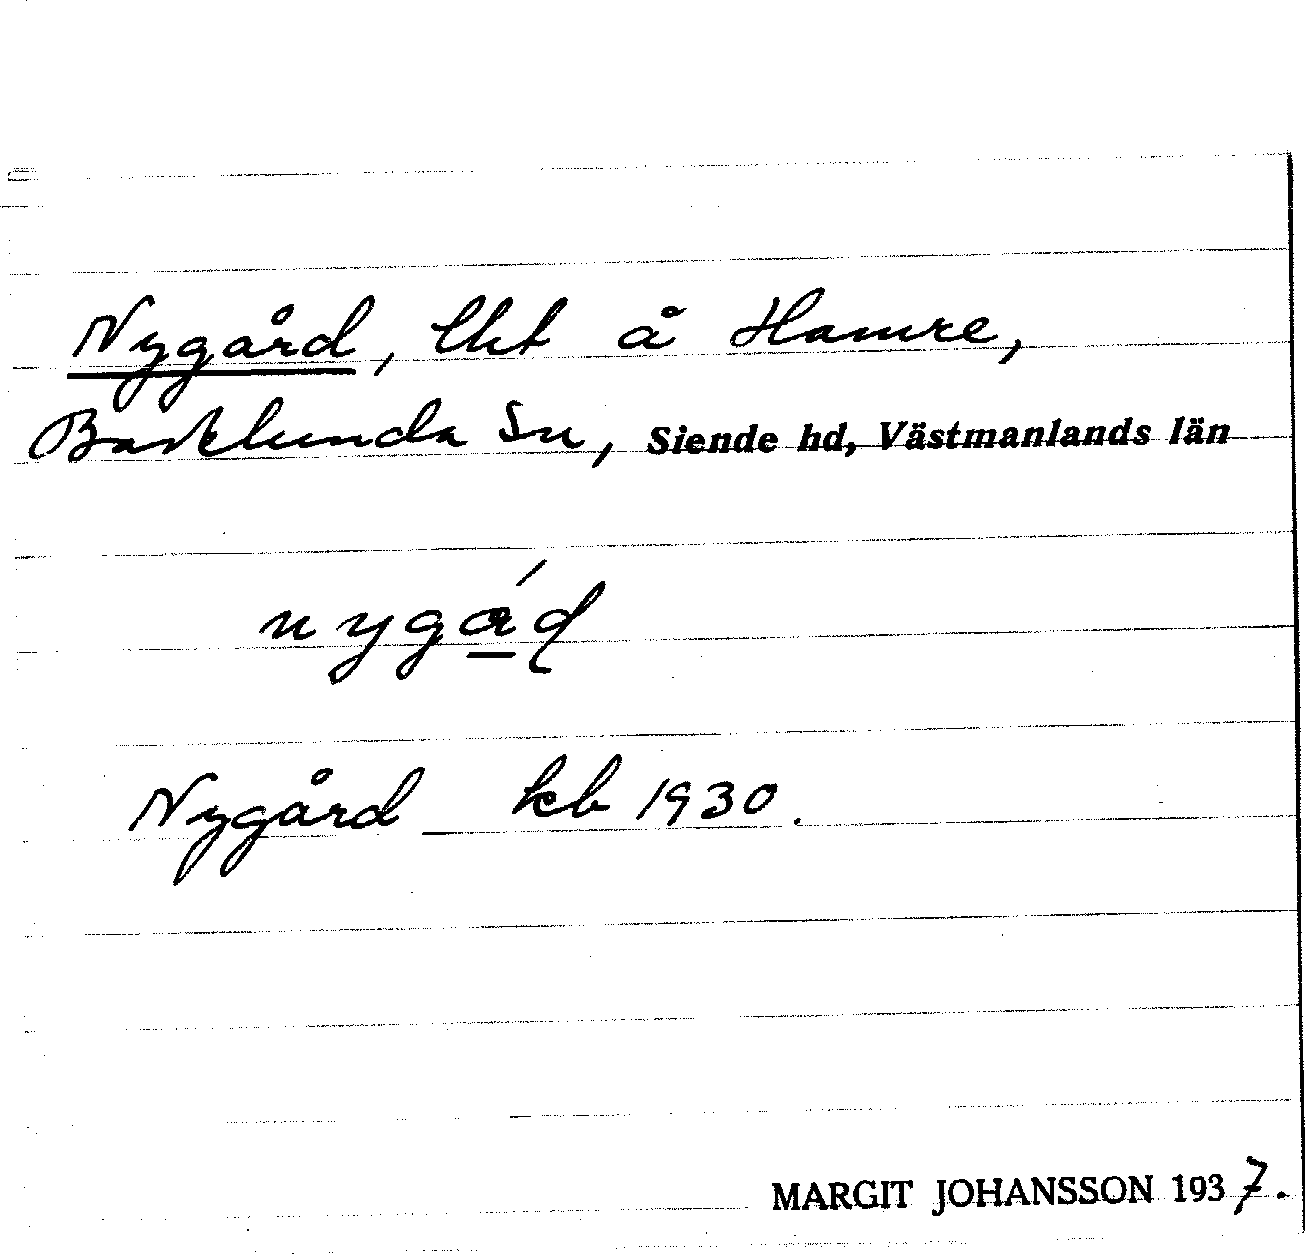 Nygård, lht å Hamre,
Badelunda sn, Siende hd, Västmanlands län
nygá̱d
Nygård kb 1930.
MARGIT JOHANSSON 1937.